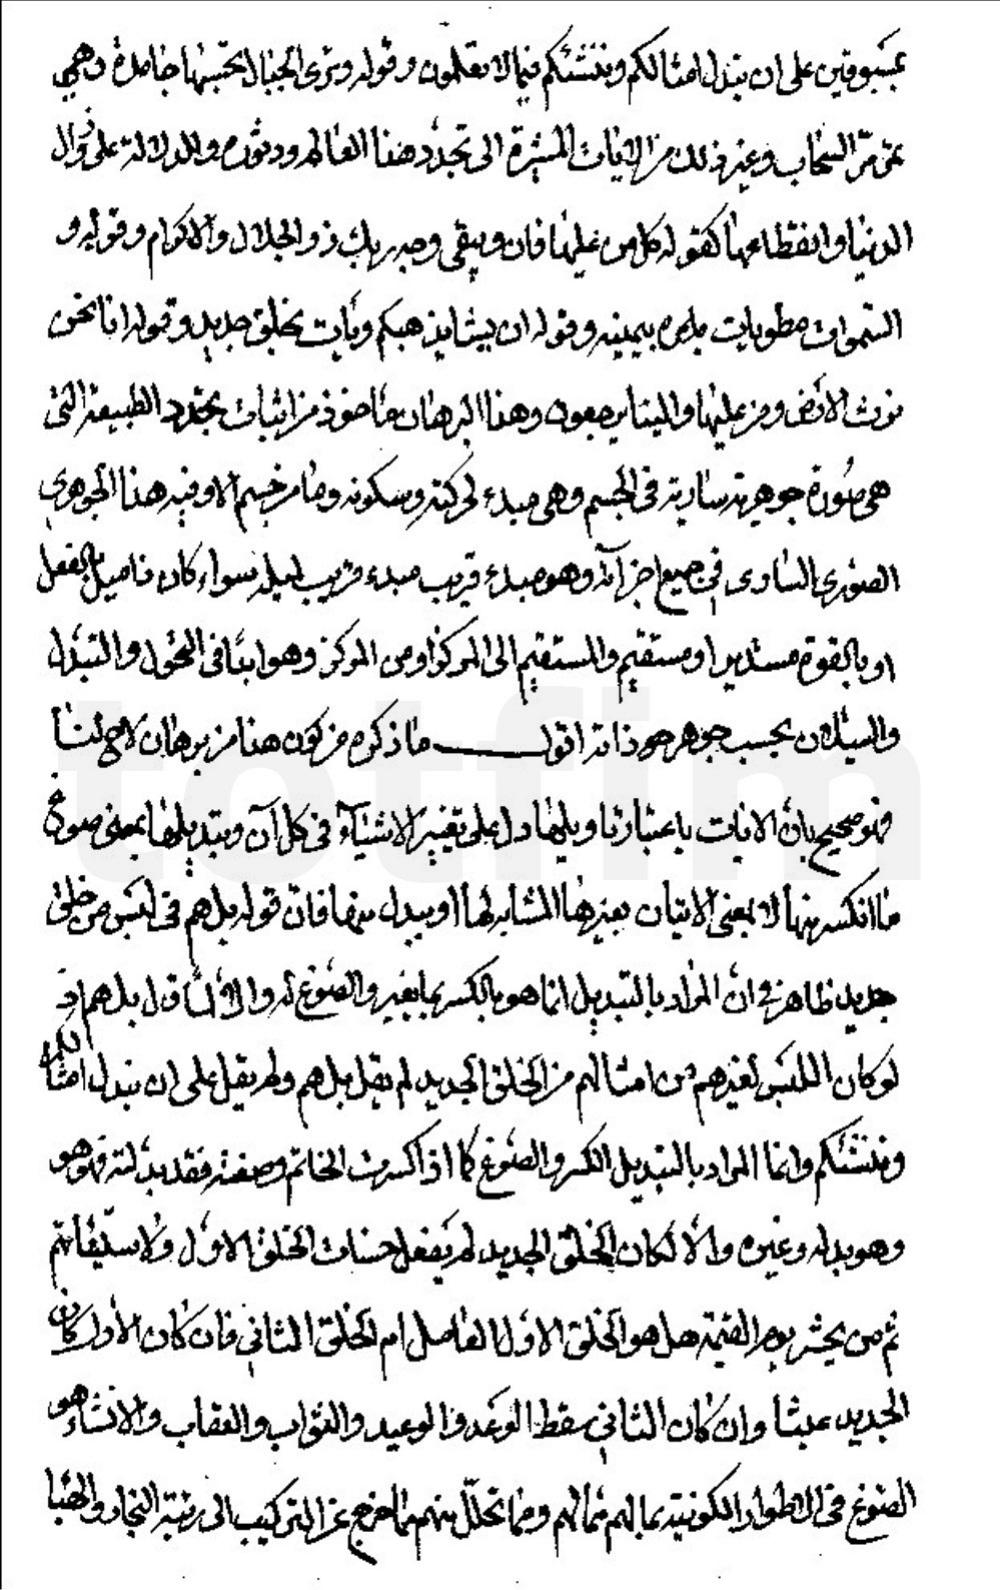 بمسبوقين على ان نبدل امثالكم وننشئكم فيما لا تعلمون وقوله وترى الجبال تحسبها جامدة وهي
تمر مر السحاب وغير ذلك من الايات المشيرة الى تجدد هذا العالم ودثوره والدلالة على زوال
الدنيا وانقطاعها كقوله كل من عليها فان ويبقى وجه ربك ذو الجلال والاكرام وقوله و
السموات مطويات بيمينه وقوله ان يشا يذهبكم ويأت بخلق جديد وقوله انا نحن
نرث الأرض ومن عليها والينا يرجعون وهذا البرهان مأخوذ من اثبات تجدد الطبيعة التي
هي صورة جوهرية سارية في الجسم وهي مبدء لحركته وسكونه وما من جسم الا وفيه هذا الجوهر
الصوري الساري في جميع اجزائه وهو مبدء قريب لميله سواء كان ما ميل بالفعل
او بالقوة مستدير او مستقيم والمستقيم الى المركز او من المركز وهو ابدا في التحول والتبدل
والسيلان بحسب جوهر ذاته اقول ما ذكره من كون هذا من برهان لاح لنا
فهو صحيح بان الايات باعتبار تاويلها دل على تغيير الاشياء في كل آن وتبديلها بمعنى صوغ
ما انكسر منها لا بمعنى الاتيان بغيرها المشابه لها او يبدل منها فان قوله بل هم في لبس من خلق
جديد ظاهر في ان المراد بالتبديل انما هو بالكسر بما يغير والصوغ له والا لما قال بل هم في
لو كان اللبس لغيرهم من امثالهم من الخلق الجديد لم يقل بل هم ولم يقل على ان نبدل امثالكم
وننشئكم وانما المراد بالتبديل الكسر والصوغ كما اذا كسرت الخاتم وصغته فقد بدلته فهو هو
وهو بدله وغيره والا لكان الخلق الجديد لم يفعل حسنات الخلق الاول ولا سيئاتهم
ثم من يحشر يوم القيمة هل هو الخلق الاول الفاعل ام الخلق الثاني فان كان الأول كان
الجديد عبثا وان كان الثاني سقط الوعد والوعيد والثواب والعقاب والانشاء هو
الصوغ في الاطوار الكونية بما لهم مما لهم وما تحلل منهم مما خرج عن التركيب الى رتبة البخار والهبا